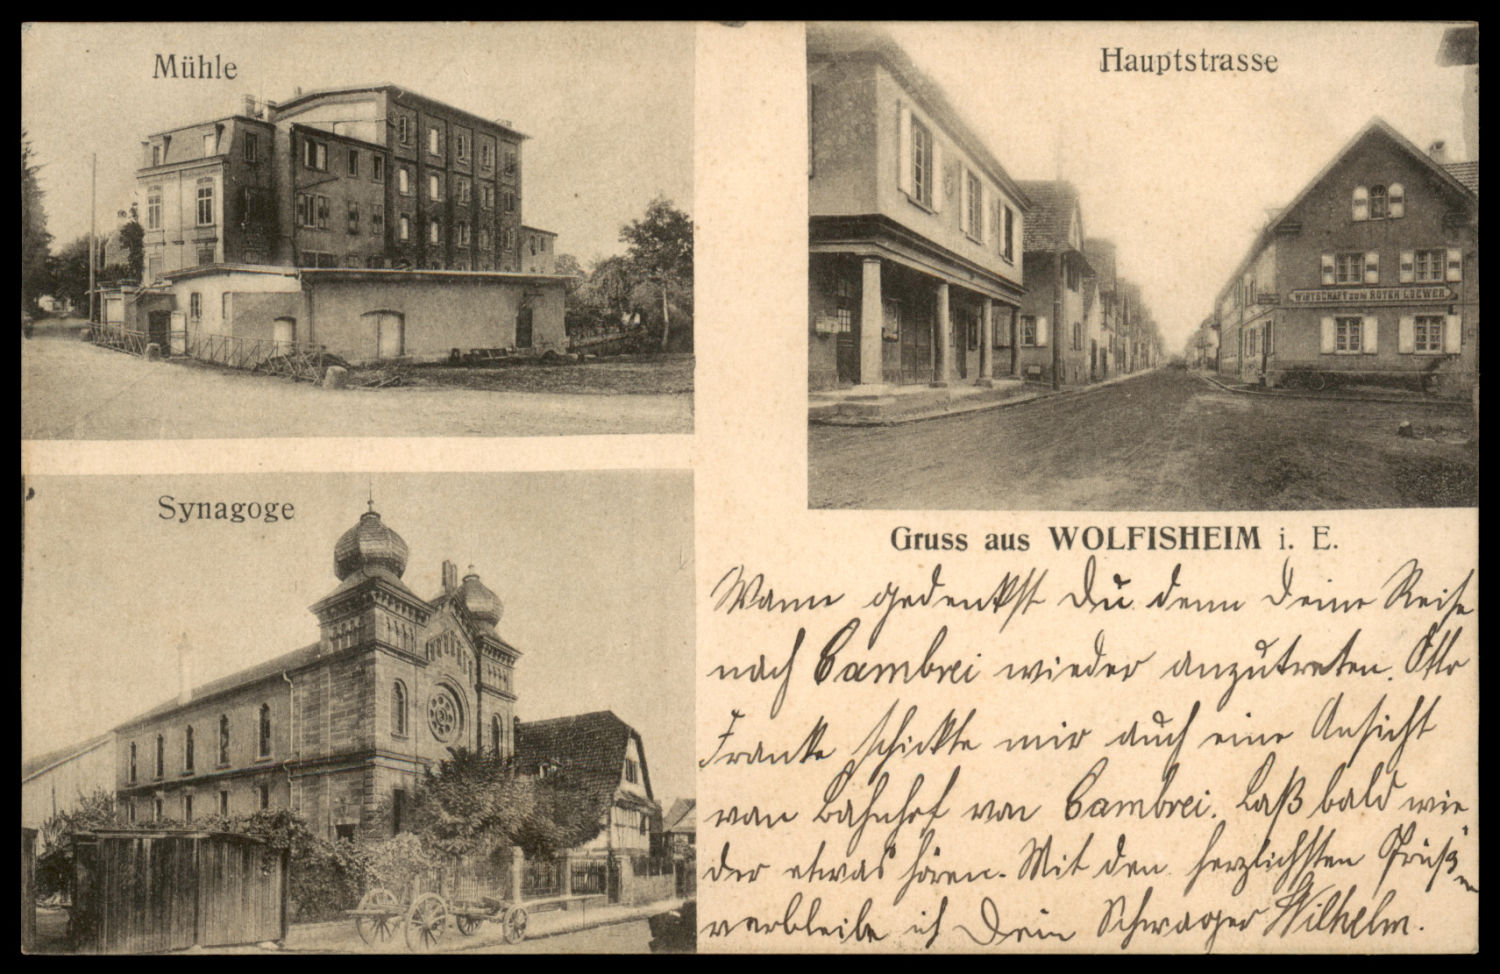 Mühle
Hauptstrasse
WIRTSCHAFT ZUM ROTEN LOEWEN
Synagoge
Gruss aus WOLFISHEIM i. E.
Wann gedenkst Du denn Deine Reise
nach Cambrei wieder anzutreten. Otto
Franke schickte mir auch eine Ansicht
vom Bahnhof von Cambrei. Laß bald wie
der etwas hören. Mit den herzlichsten Grüßen
verbleibe ich Dein Schwager Wilhelm.